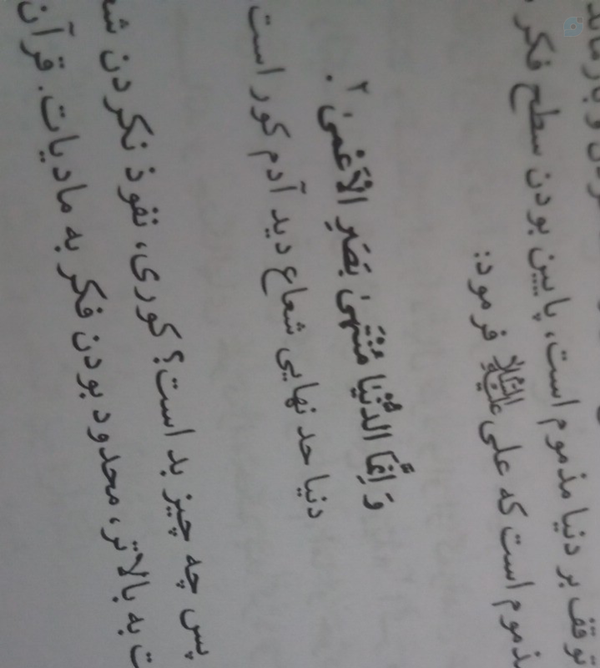 و بازماند
توقف بر دنیا مذموم است، پایین بودن سطح فکر
ذموم است که علی علیه السلام فرمود:
وَ اِنَّمَا الدُّنْیا مُنْتَهیٰ بَصَرِ الْاَعْمیٰ ۲.
دنیا حد نهایی شعاع دید آدم کور است
پس چه چیز بد است؟ کوری، نفوذ نکردن شع
ت به بالاتر، محدود بودن فکر به مادیات. قرآن